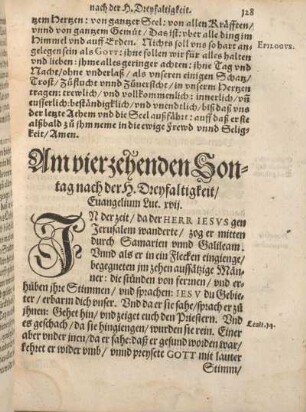 nach der H. Dreyfaltigkeit.
328
tzem Hertzen: von gantzer Seel: von allen Kräfften/
vnnd von gantzem Gemüt/ Das ist: vber alle ding im
Himmel vnd auff Erden. Nichts soll vns so hart an-
EPILOGVS.
gelegen sein als GOTT: jhne sollen wir für alles halten
vnd lieben: jhme alles geringer achten: ohne Tag vnd
Nacht/ ohne vnderlaß/ als vnseren einigen Schatz/
Trost/ Zuflucht vnnd Zuuersicht/ in vnserm Hertzen
tragen: trewlich/ vnd vollkommenlich: innerlich/ vnd
eusserlich: bestándigklich/ vnd vnendtlich/ biß daß vns
der letzte Athem vnd die Seel außfährt: auff daß er ste
alßbald zů jhm neme in die ewige Frewd vnnd Selig-
keit/ Amen.
Am vierzehenden Son-
tag nach der H. Dreyfaltigkeit/
Euangelium Luc. xvij.
IN der zeit/ da der HERR IESVS gen
Jerusalem wanderte/ zog er mitten
durch Samarien vnnd Galileam.
Vnnd als er in ein Flecken eingienge/
begegneten jm zehen aussätzige Män-
ner: die stůnden von ferrnen/ vnd er-
hůben jhre Stimmen/ vnd sprachen: IESV du Gebie-
ter/ erbarm dich vnser. Vnd da er sie sahe/ sprach er zů
jhnen: Gehet hin/ vnd zeiget euch den Priestern. Vnd
Leuit. 14.
es geschach/ da sie hingiengen/ wurden sie rein. Einer
aber vnder jnen/ da er sahe: daß er gesund worden war/
kehret er wider vmb/ vnnd preysete GOTT mit lauter
Stimm/